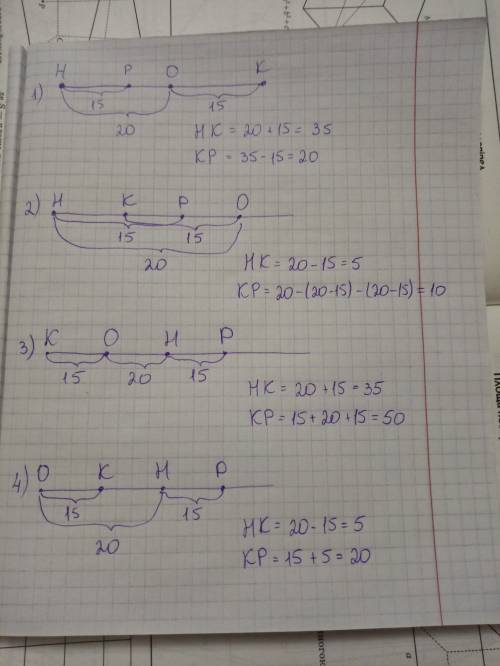 1)
Н Р О К
15 15
20
НК = 20 + 15 = 35
КР = 35 - 15 = 20
2)
Н К Р О
15 15
20
НК = 20 - 15 = 5
КР = 20 - (20 - 15) - (20 - 15) = 10
3)
К О Н Р
15 20 15
НК = 20 + 15 = 35
КР = 15 + 20 + 15 = 50
4)
О К Н Р
15 15
20
НК = 20 - 15 = 5
КР = 15 + 5 = 20